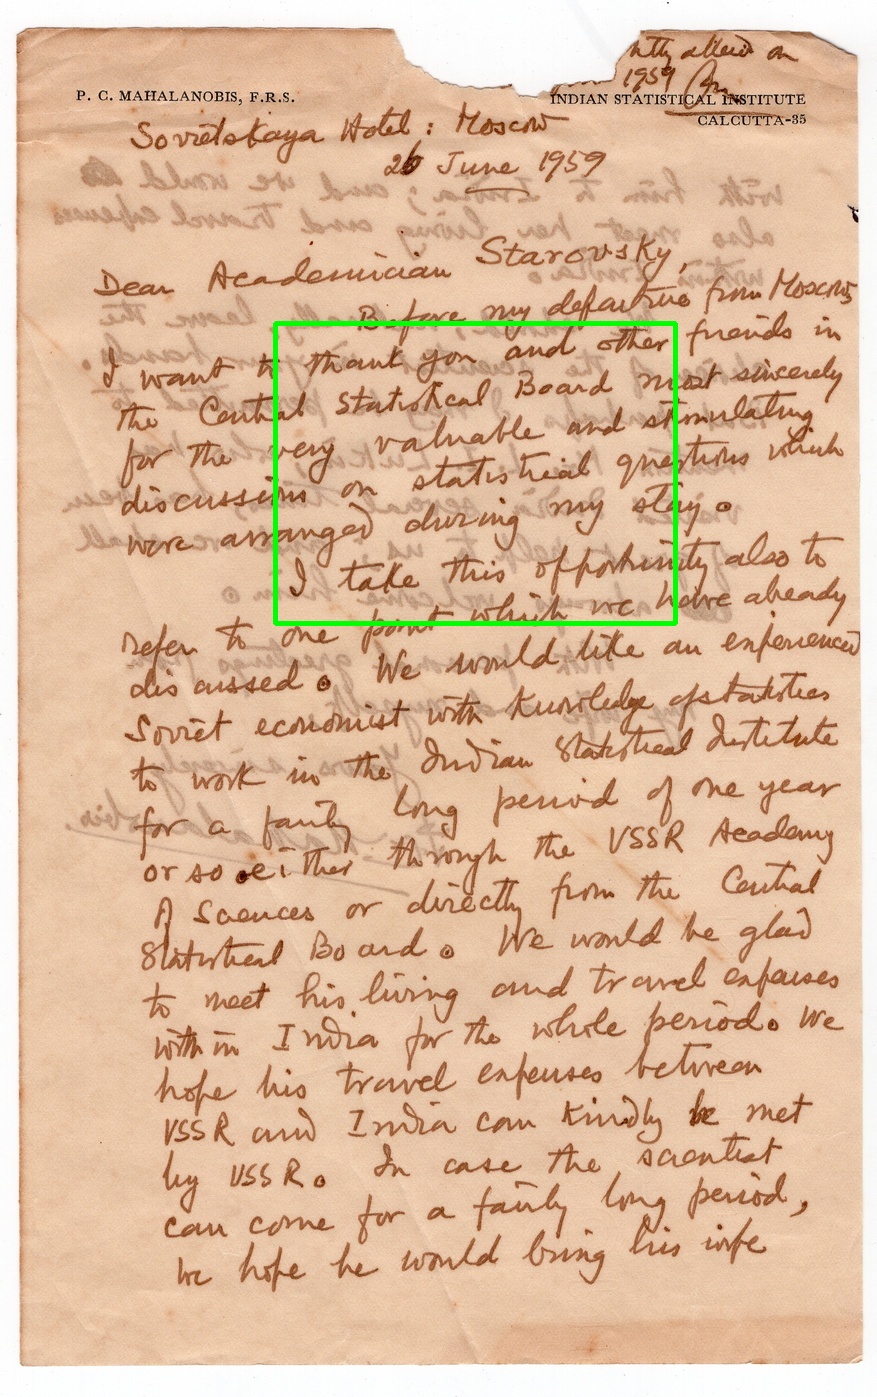 ntly allowed on
1959
P. C. MAHALANOBIS, F.R.S.
INDIAN STATISTICAL INSTITUTE
CALCUTTA-35
Sovietskaya Hotel : Moscow
26 June 1959
Dear Academician Starovsky,
Before my departure from Moscow,
I want to thank you and other friends in
the Central Statistical Board most sincerely
for the very valuable and stimulating
discussions on statistical questions which
were arranged during my stay.
I take this opportunity also to
refer to one point which we have already
discussed. We would like an experienced
Soviet economist with knowledge of statistics
to work in the Indian Statistical Institute
for a fairly long period of one year
or so either through the USSR Academy
of Sciences or directly from the Central
Statistical Board. We would be glad
to meet his living and travel expenses
within India for the whole period. We
hope his travel expenses between
USSR and India can kindly be met
by USSR. In case the scientist
can come for a fairly long period,
we hope he would bring his wife